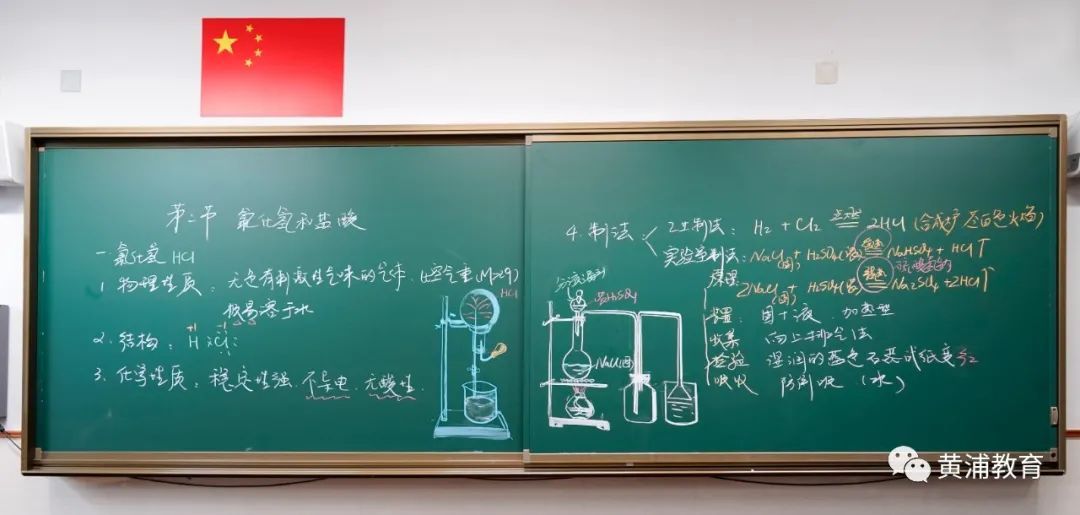 第二节 氯化氢和盐酸
一.氯化氢 HCl
1. 物理性质：无色有刺激性气味的气体、比空气重(M>29)
极易溶于水
HCl
2. 结构：H :Cl:
+1 -1
3. 化学性质：稳定性强、不导电、无酸性.
4. 制法：
工业制法：H₂ + Cl₂ 点燃 2HCl (合成炉 苍白色火焰)
实验室制法：NaCl(固) + H₂SO₄(浓) 微热 NaHSO₄ + HCl↑
原理
2NaCl(固) + H₂SO₄(浓) 强热 Na₂SO₄ + 2HCl↑
装置：固+液、加热型
收集 向上排气法
检验 湿润的蓝色石蕊试纸变红
吸收 防倒吸 (水)
分液漏斗
浓H₂SO₄
NaCl(固)
黄浦教育